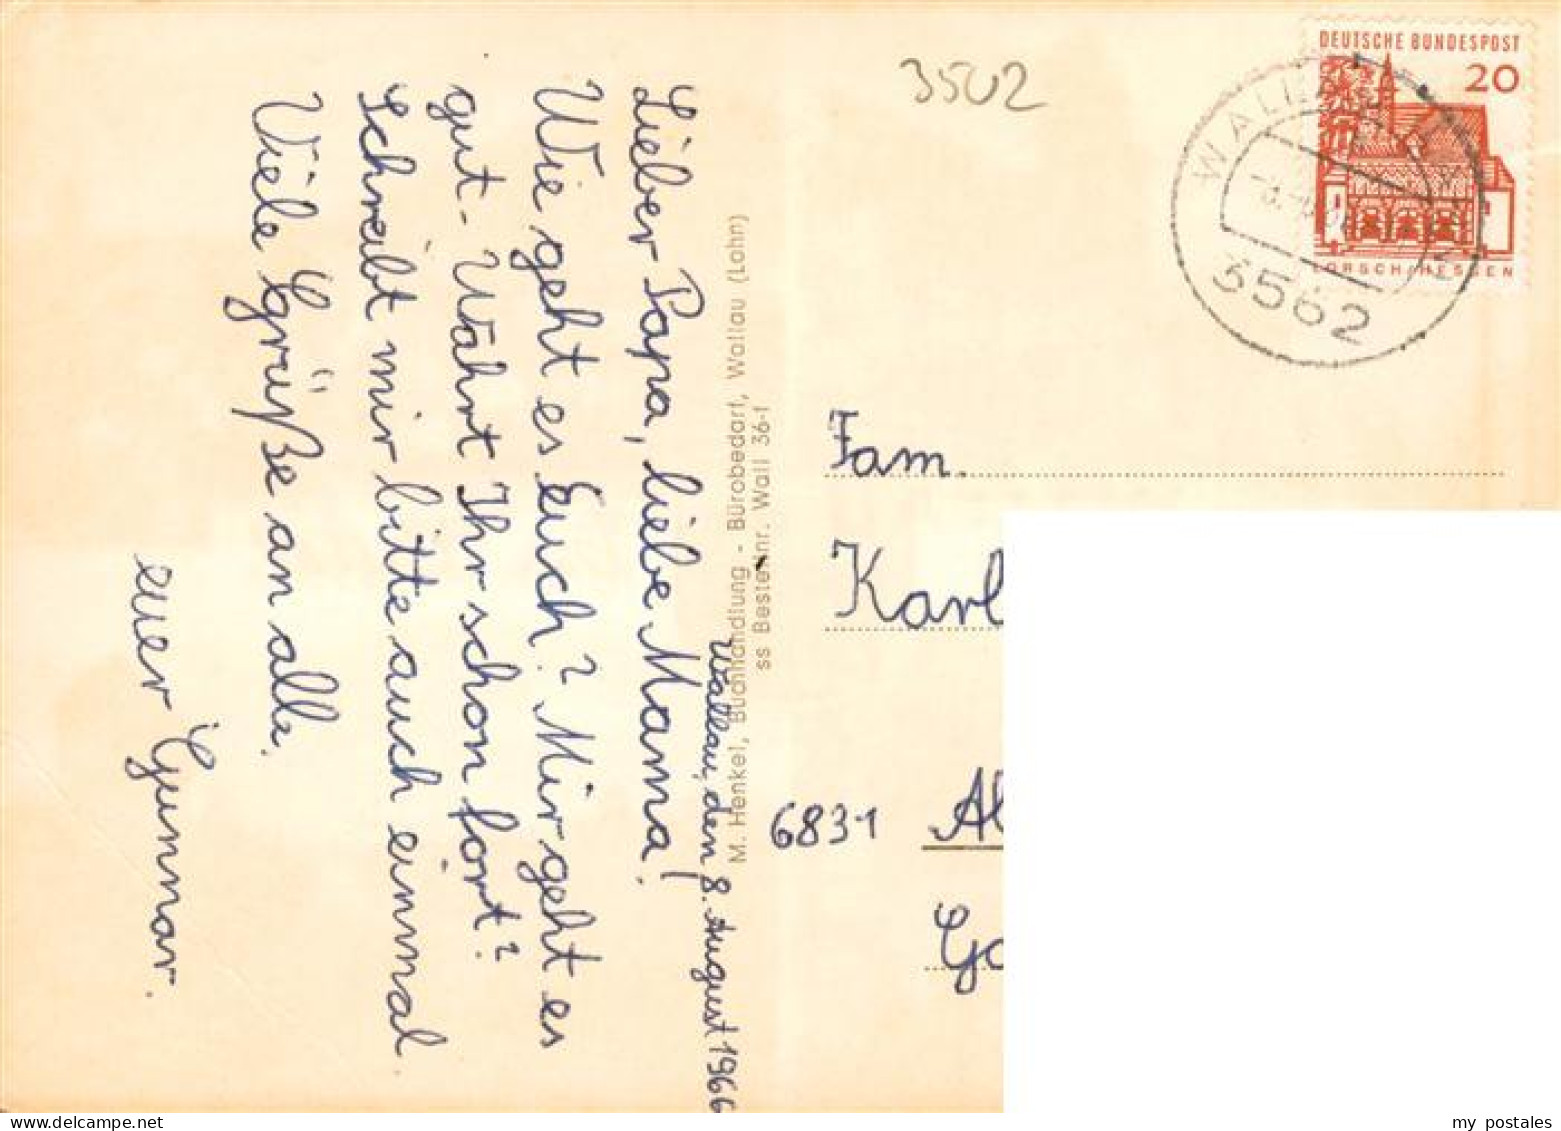 Wallau, den 8. August 1966
Lieber Papa, liebe Mama!
Wie geht es Euch? Mir geht es
gut. Wahrt Ihr schon fort?
Schreibt mir bitte auch einmal.
Viele Grüße an alle.
euer Gunnar.
M. Henkel, Buchhandlung - Bürobedarf, Wallau (Lahn)
ss Bestellnr. Wall 36-1
3502
DEUTSCHE BUNDESPOST
20
LORSCH/HESSEN
3562
Fam.
Karl
6831